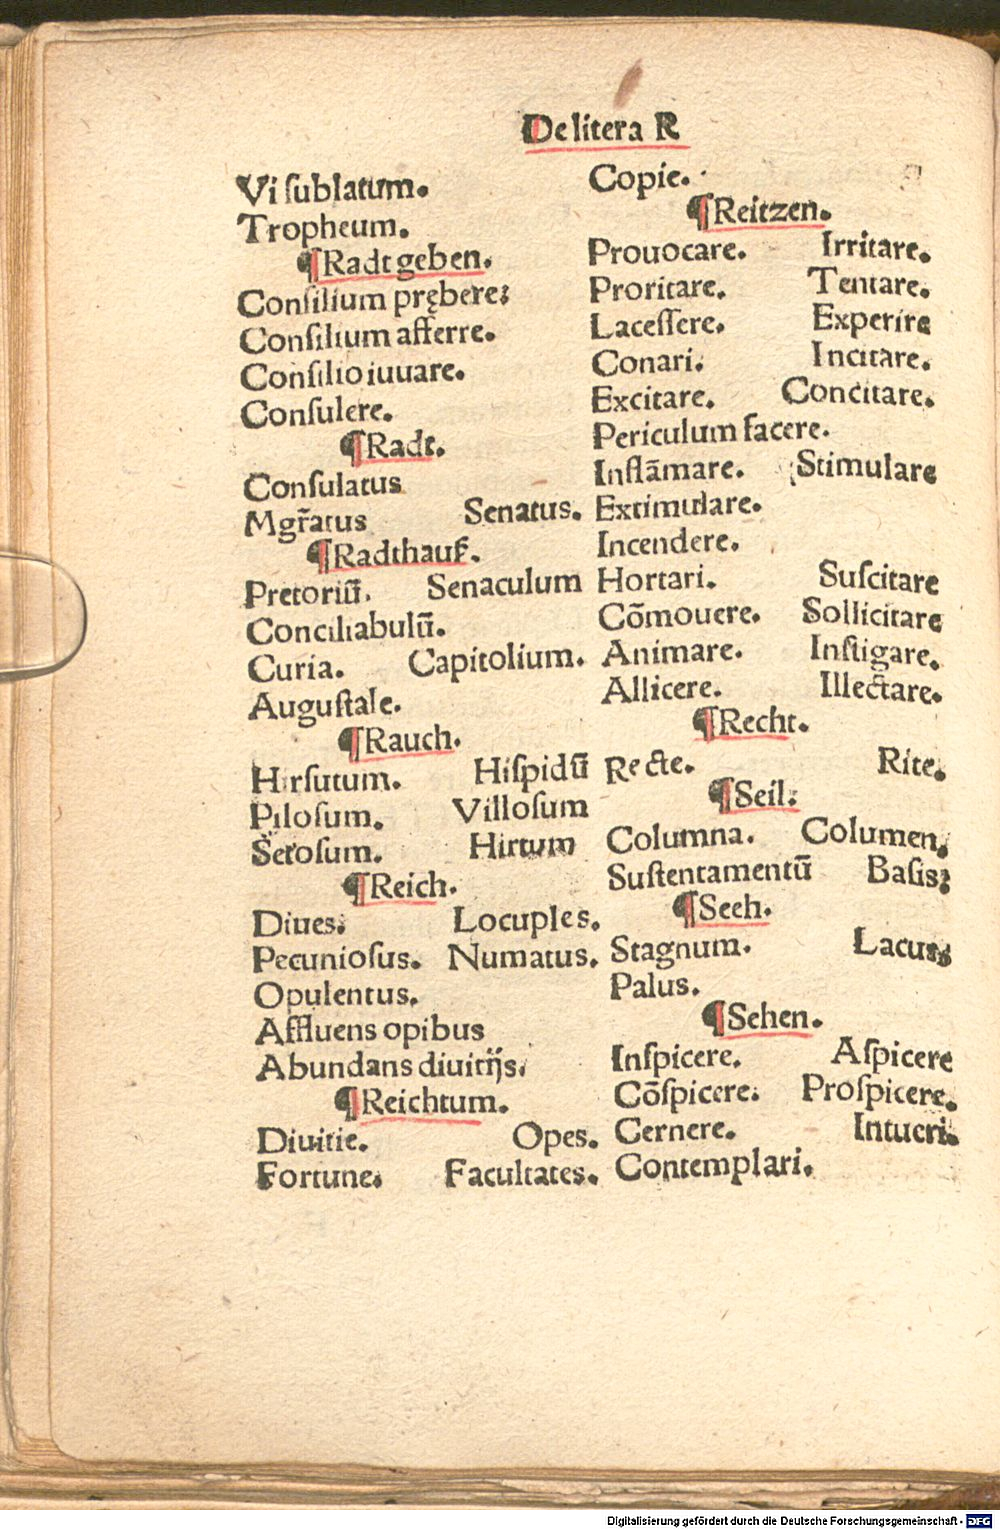 De litera R
Vi ſublatum.
Tropheum.
¶Radt geben.
Conſilium prębere:
Conſilium afferre.
Conſilio iuuare.
Conſulere.
¶Radt.
Conſulatus
Mgr̃atus Senatus.
¶Radthauß.
Pretoriũ. Senaculum
Conciliabulũ.
Curia. Capitolium.
Auguſtale.
¶Rauch.
Hirſutum. Hiſpidũ
Piloſum. Villoſum
Setoſum. Hirtum
¶Reich.
Diues. Locuples.
Pecunioſus. Numatus.
Opulentus.
Affluens opibus
Abundans diuitijs.
¶Reichtum.
Diuitie. Opes.
Fortune. Facultates.
Copie.
¶Reitzen.
Prouocare. Irritare.
Proritare. Tentare.
Laceſſere. Experire
Conari. Incitare.
Excitare. Concitare.
Periculum facere.
Inflãmare. Stimulare
Extimulare.
Incendere.
Hortari. Suſcitare
Cõmouere. Sollicitare
Animare. Inſtigare.
Allicere. Illectare.
¶Recht.
Recte. Rite.
¶Seil.
Columna. Columen.
Suſtentamentũ Baſis:
¶Seeh.
Stagnum. Lacus.
Palus.
¶Sehen.
Inſpicere. Aſpicere
Cõſpicere. Proſpicere.
Cernere. Intueri.
Contemplari.
Digitalisierung gefördert durch die Deutsche Forschungsgemeinschaft - DFG